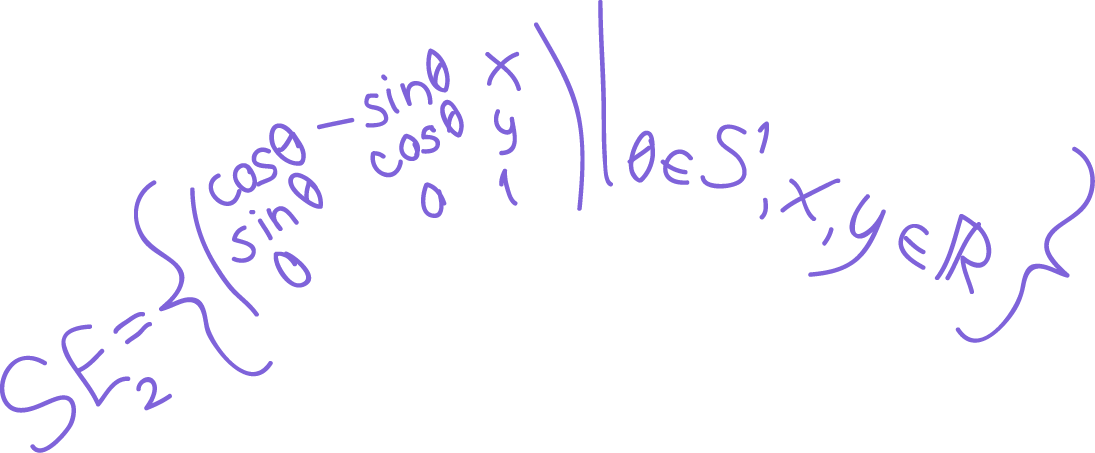 SE₂ = { ( cosθ −sinθ x
sinθ cosθ y
0 0 1 ) | θ ∈ S¹, x, y ∈ ℝ }